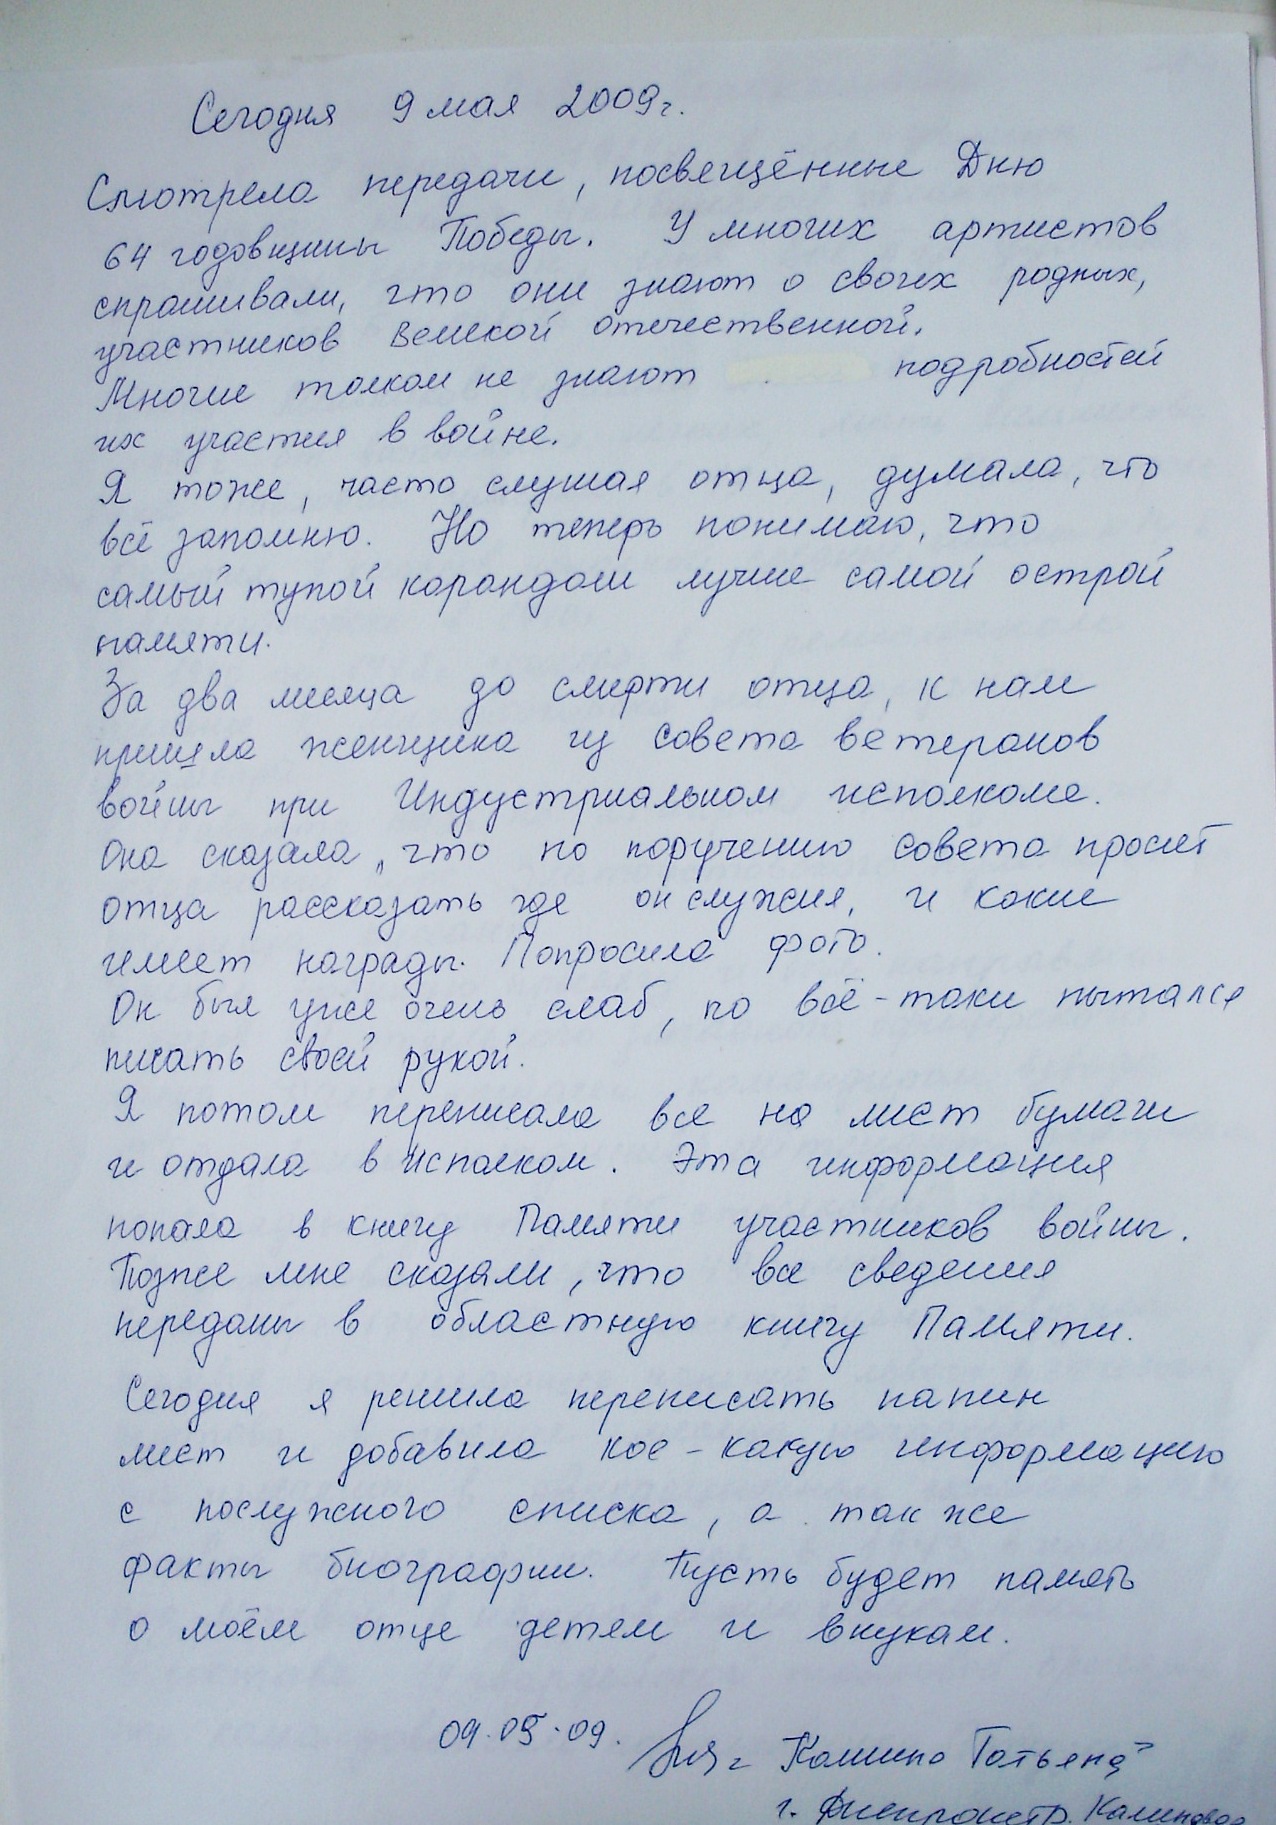 Сегодня 9 мая 2009г.
Смотрела передачи, посвещённые Дню
64 годовщины Победы. У многих артистов
спрашивали, что они знают о своих родных,
участников Великой отечественной.
Многие толком не знают подробностей
их участия в войне.
Я тоже, часто слушая отца, думала, что
всё запомню. Но теперь понимаю, что
самый тупой карандаш лучше самой острой
памяти.
За два месяца до смерти отца, к нам
пришла женщина из совета ветеранов
войны при Индустриальном исполкоме.
Она сказала, что по поручению совета просит
отца рассказать где он служил, и какие
имеет награды. Попросила фото.
Он был уже очень слаб, но всё-таки пытался
писать своей рукой.
Я потом переписала все на лист бумаги
и отдала в исполком. Эта информация
попала в книгу Памяти участников войны.
Позже мне сказали, что все сведения
переданы в областную книгу Памяти.
Сегодня я решила переписать папин
лист и добавила кое-какую информацию
с послужного списка, а так же
факты биографии. Пусть будет память
о моём отце детям и внукам.
09.05.09. Татьяна
г. Днепропетр.